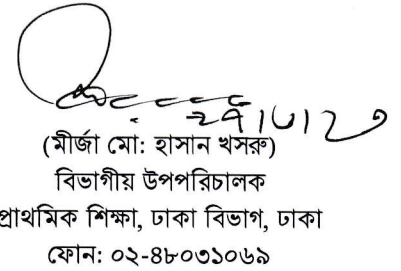 (মীর্জা মো: হাসান খসরু)
বিভাগীয় উপপরিচালক
প্রাথমিক শিক্ষা, ঢাকা বিভাগ, ঢাকা
ফোন: ০২-৪৮০৩১০৬৯